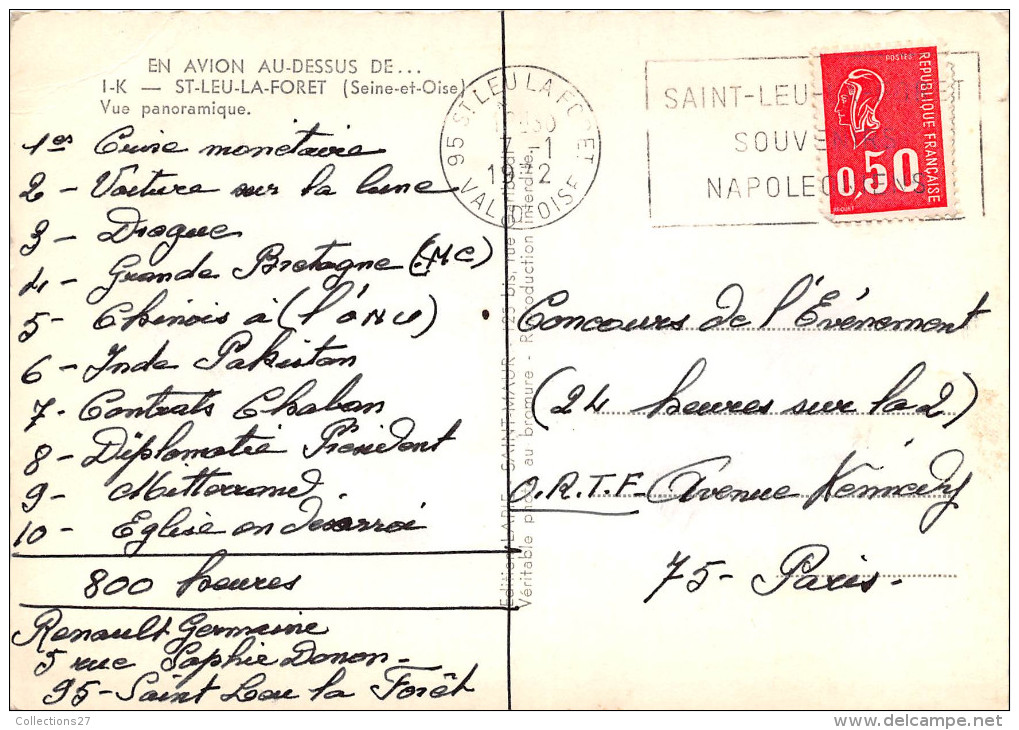 EN AVION AU-DESSUS DE...
I-K — ST-LEU-LA-FORET (Seine-et-Oise)
Vue panoramique.
1er Crise monétaire
2 - Voiture sur la lune
3 - Drogue
4 - Grande Bretagne (MC)
5 - Chinois à (l'ONU)
6 - Inde Pakistan
7 - Contrats Chaban
8 - Diplomatie Président
9 - Mitterrand
10 - Eglise en désarroi
800 heures
Renault Germaine
5 rue Sophie Donon -
95 - Saint Leu la Forêt
Edition LAPIE SAINT-MAUR 25 bis, rue
Véritable photo au bromure - Reproduction interdite.
95 ST LEU LA FORET
7 -1
1972
VAL D'OISE
SAINT-LEU-
SOUVE
NAPOLEO
POSTES
REPUBLIQUE FRANÇAISE
0,50
Concours de l'Evénement
(24 heures sur la 2)
O.R.T.F - Avenue Kénnedy
75 - Paris -
Collections27
www.delcampe.net